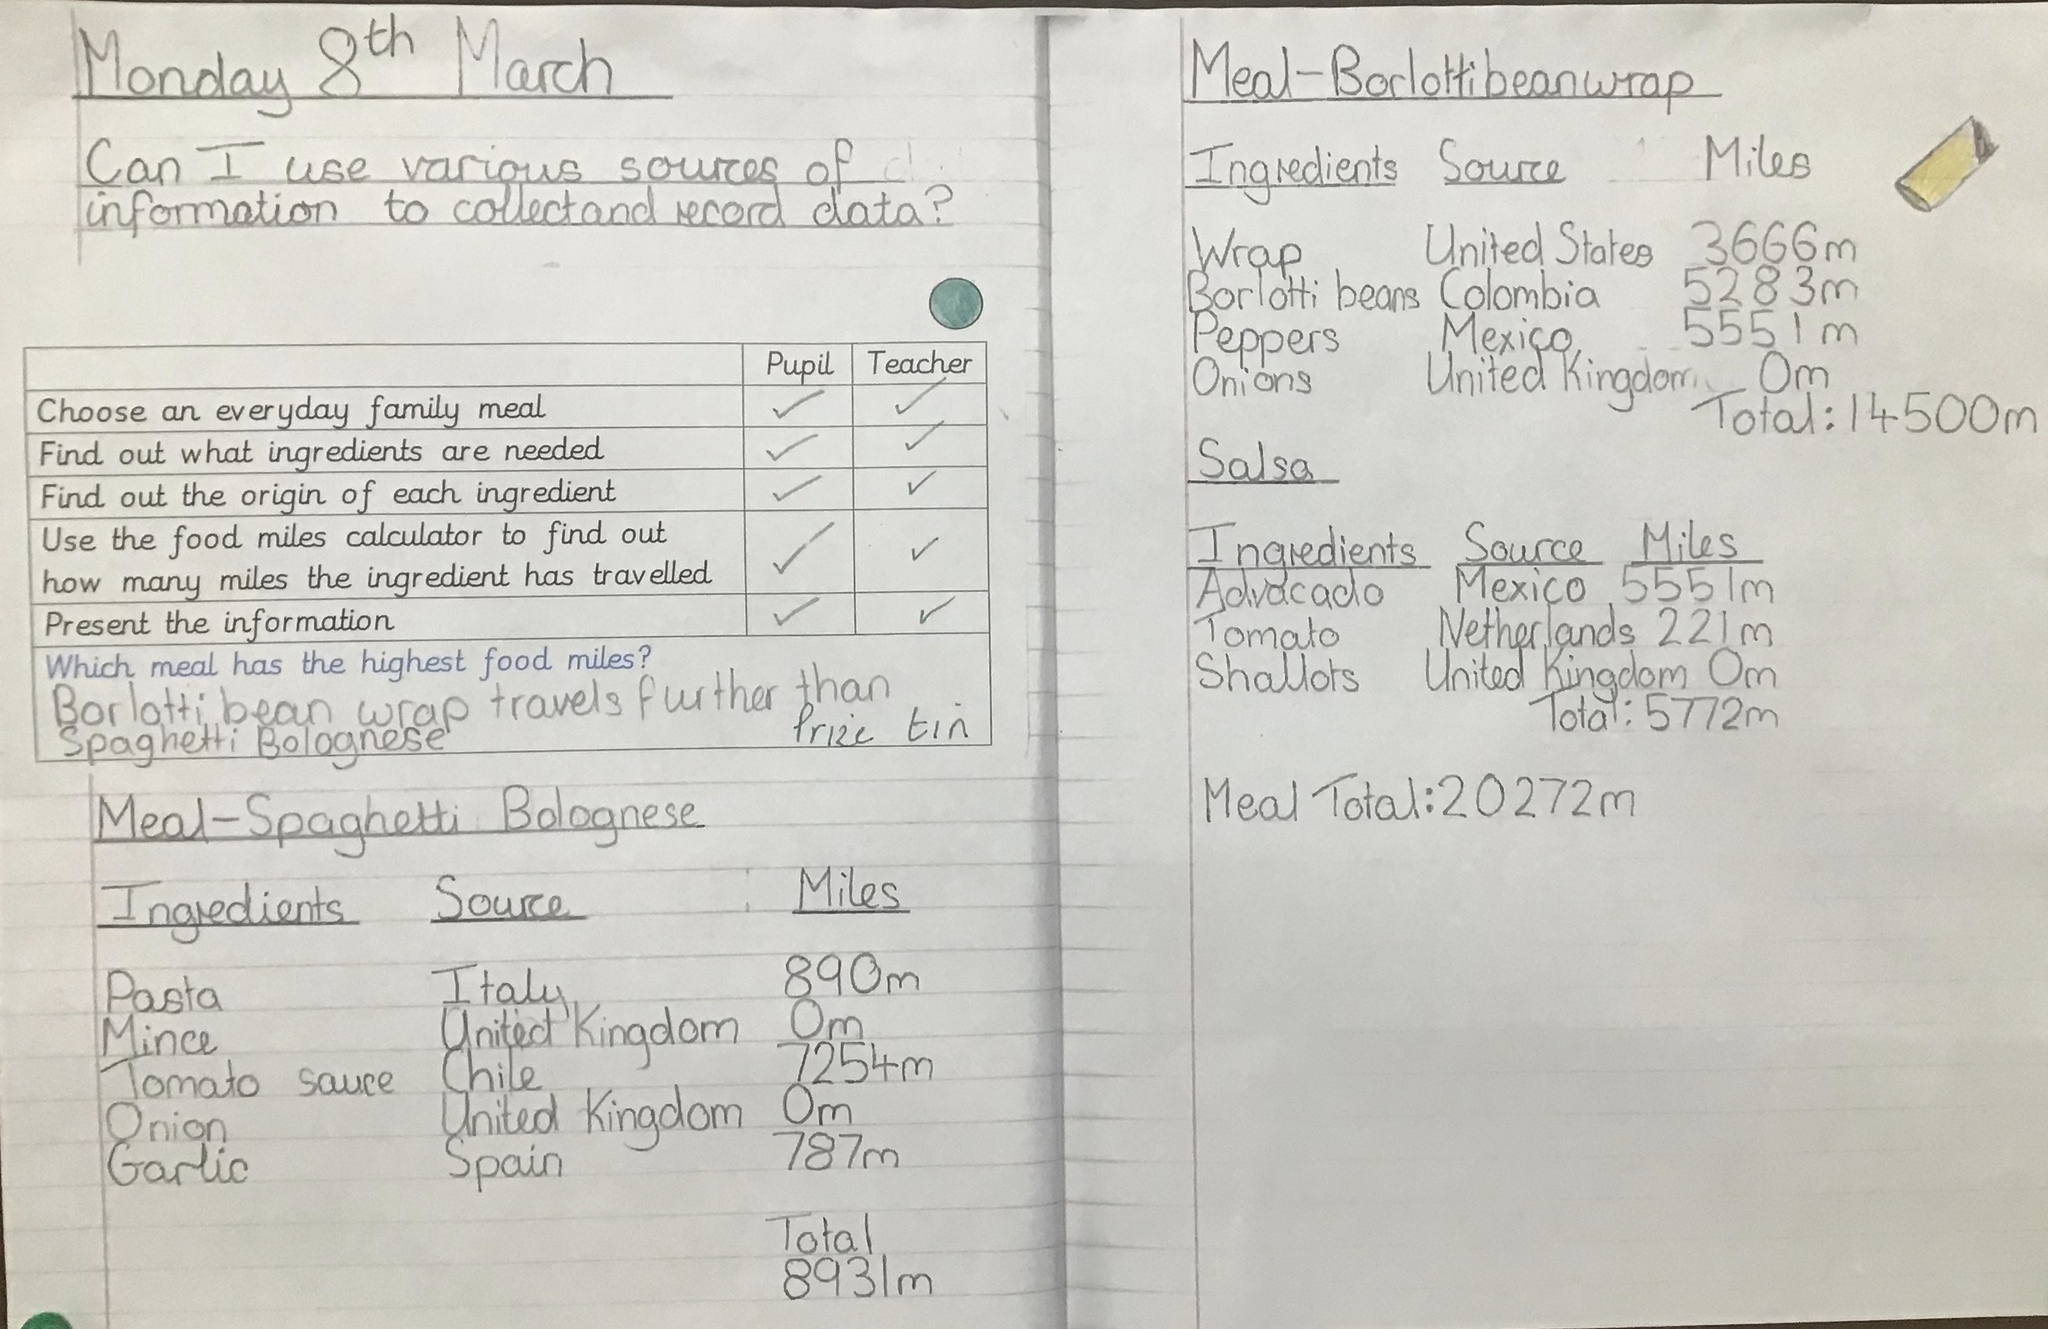 Monday 8th March
Can I use various sources of
information to collect and record data?
Pupil Teacher
Choose an everyday family meal
Find out what ingredients are needed
Find out the origin of each ingredient
Use the food miles calculator to find out
how many miles the ingredient has travelled
Present the information
Which meal has the highest food miles?
Borlotti bean wrap travels further than
Spaghetti Bolognese
Prize tin
Meal-Spaghetti Bolognese
Ingredients Source Miles
Pasta Italy 890m
Mince United Kingdom 0m
Tomato sauce Chile 7254m
Onion United Kingdom 0m
Garlic Spain 787m
Total
8931m
Meal-Borlotti bean wrap
Ingredients Source Miles
Wrap United States 3666m
Borlotti beans Colombia 5283m
Peppers Mexico 5551m
Onions United Kingdom 0m
Total: 14500m
Salsa
Ingredients Source Miles
Advocado Mexico 5551m
Tomato Netherlands 221m
Shallots United Kingdom 0m
Total: 5772m
Meal Total: 20272m